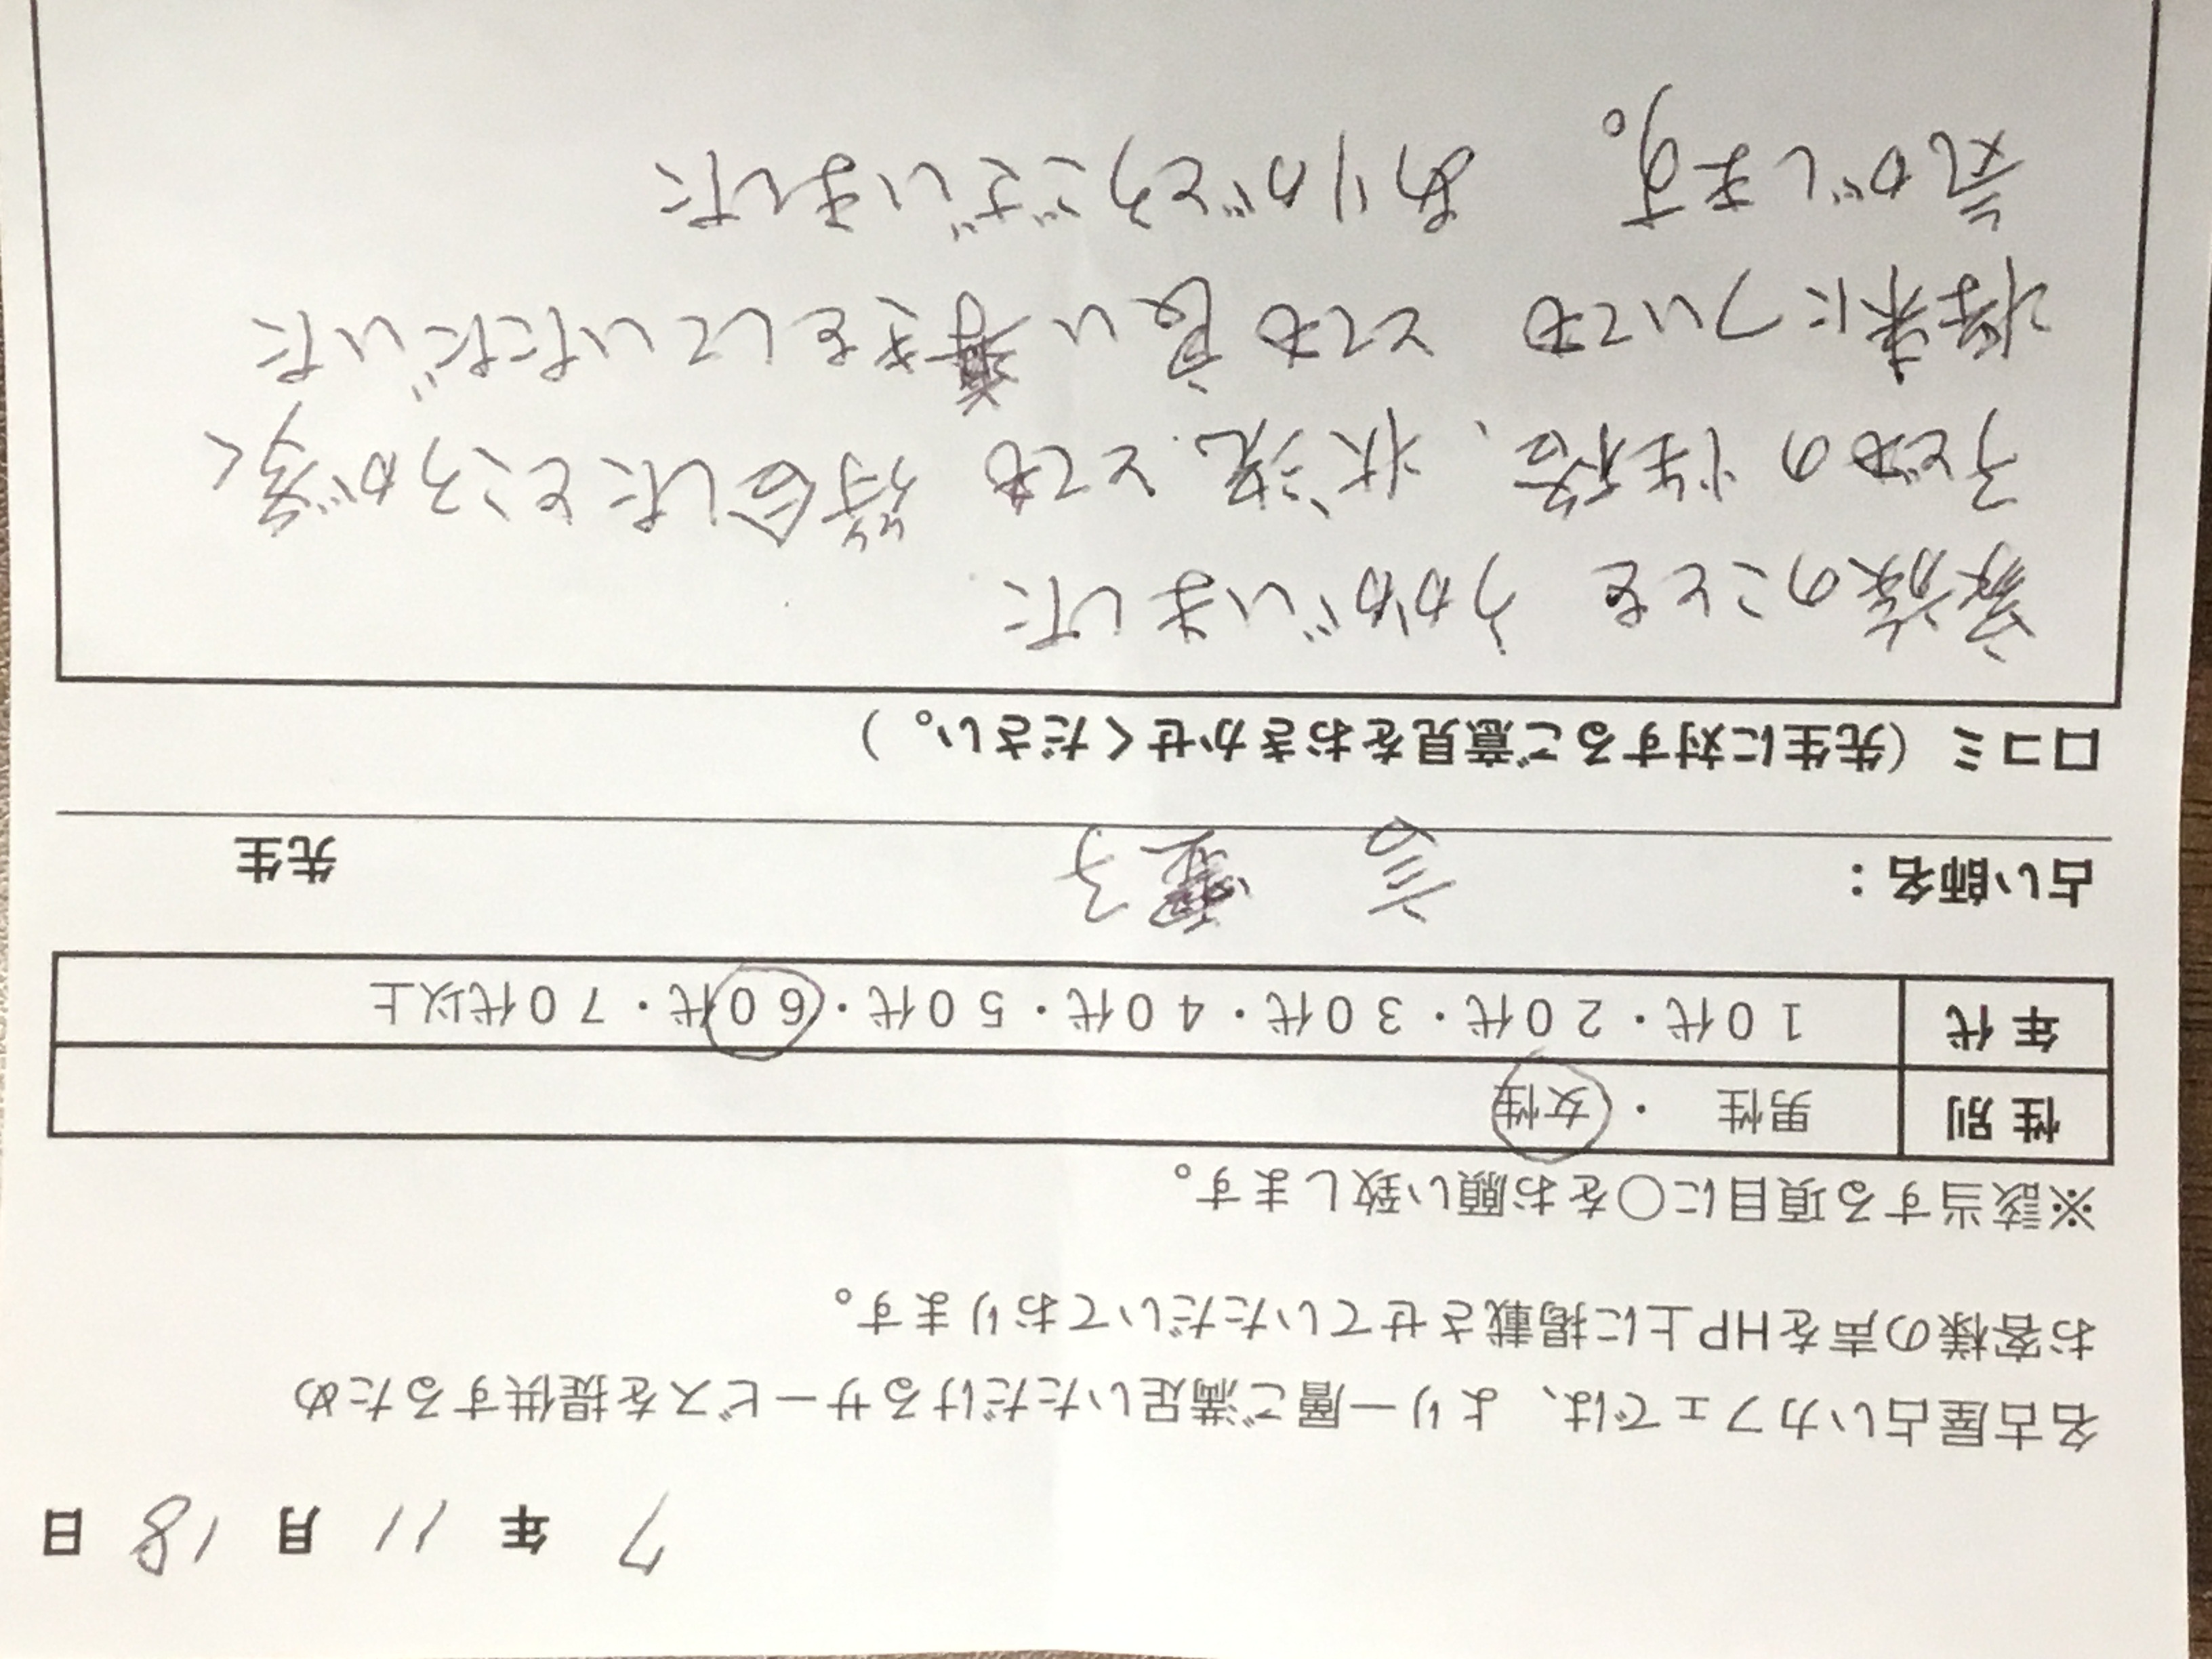 7 年 11 月 18 日
名古屋占いカフェでは、より一層ご満足いただけるサービスを提供するため
お客様の声をHP上に掲載させていただいております。
※該当する項目に〇をお願い致します。
性別 男性 ・ 女性
年代 10代・20代・30代・40代・50代・60代・70代以上
占い師名: 言 子 先生
口コミ(先生に対するご意見をおきかせください。)
家族のことを うかがいました
子どもの性格、状況、とても 符合したところが多く
将来についても とても良い導きをしていただいた
気がします。 ありがとうございました